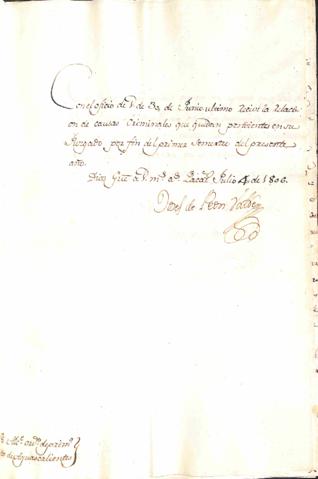 Con el oficio de V de 30, de Junio ultimo recivi la relac
on de causas Criminales que quedan pendientes en su
Juzgado por fin del primer semestre del presente
año.
Dios gue a V. ms. as. Zacats. Julio 4, de 1806.
de Leon Valdez
de Aguascalientes